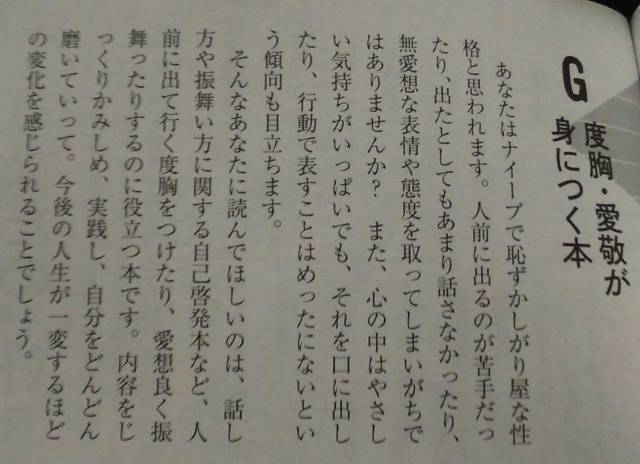 G 度胸・愛敬が
身につく本
あなたはナイーブで恥ずかしがり屋な性
格と思われます。人前に出るのが苦手だっ
たり、出たとしてもあまり話さなかったり、
無愛想な表情や態度を取ってしまいがちで
はありませんか？　また、心の中はやさし
い気持ちがいっぱいでも、それを口に出し
たり、行動で表すことはめったにないとい
う傾向も目立ちます。
そんなあなたに読んでほしいのは、話し
方や振舞い方に関する自己啓発本など、人
前に出て行く度胸をつけたり、愛想良く振
舞ったりするのに役立つ本です。内容をじ
っくりかみしめ、実践し、自分をどんどん
磨いていって。今後の人生が一変するほど
の変化を感じられることでしょう。